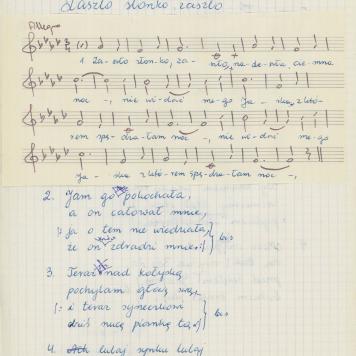 Zaszło słonko, zaszło
Allegro
1. Za-szło słon-ko, za-szło, na-de-szła, ciem-na
noc -, nie wi-dzić me-go Ja - sia, z lubo-
rem spę-dza-łam noc -, nie wi-dzić me-go
Ja - sia z lubo-rem spę-dza-łam noc -,
2. Jam go pokochała,
a on całował mnie,
/: Ja o tem nie wiedziała,
że on zdradzi mnie :/ bis
3. Teraz nad kołyską
pochylam głowę swą,
/: i teraz syneczkowi
dziś nucę piosnkę tą :/ bis
4. lulaj synku lulaj